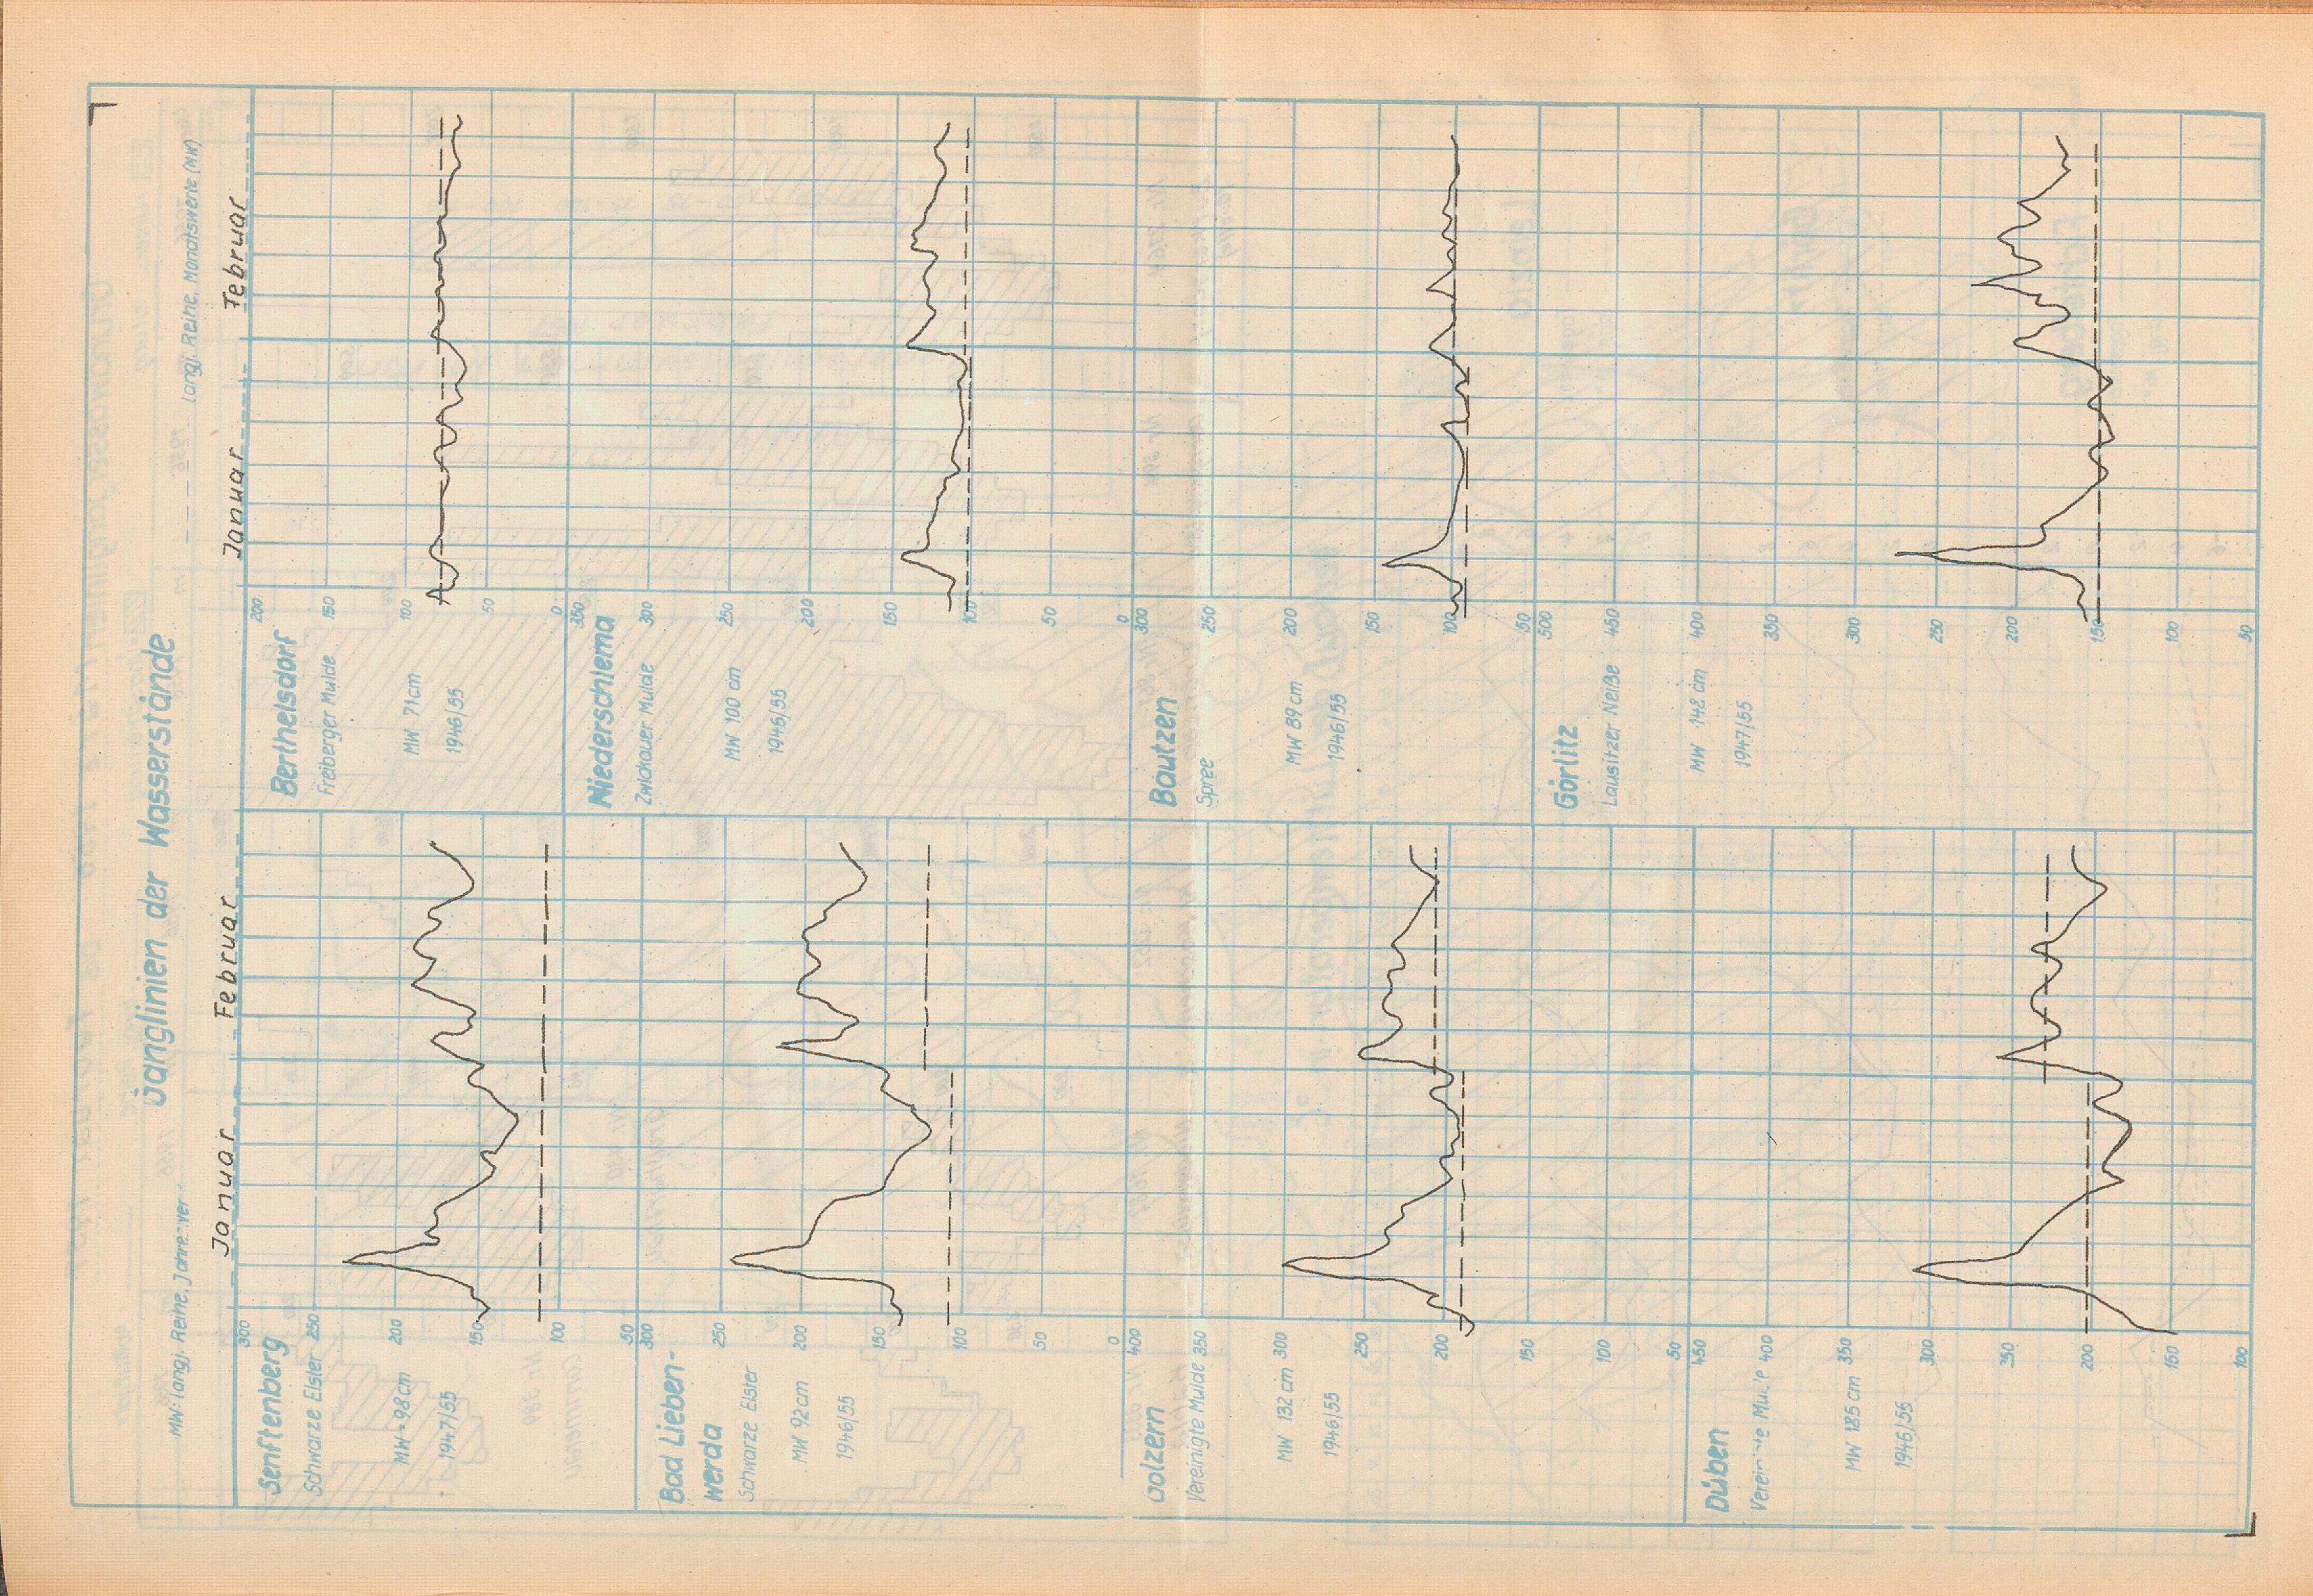 Ganglinien der Wasserstände
MW: langj. Reihe, Jahre
langj. Reihe, Monatswerte (MW)
Januar
Februar
Januar
Februar
Senftenberg
Schwarze Elster
MW - 98 cm
1947/55
300
250
200
150
100
50
Bad Lieben-
werda
Schwarze Elster
MW 92 cm
1946/55
300
250
200
150
100
50
0
Golzern
Vereinigte Mulde
MW 132 cm
1946/55
400
350
300
250
200
150
100
50
Düben
MW 185 cm
1946/55
450
400
350
300
250
200
150
100
Berthelsdorf
Freiberger Mulde
MW 71 cm
1946/55
200
150
100
50
0
Niederschlema
Zwickauer Mulde
MW 100 cm
1946/55
350
300
250
200
150
100
50
0
Bautzen
Spree
MW 89 cm
1946/55
300
250
200
150
100
50
Görlitz
Lausitzer Neiße
MW 142 cm
1947/55
500
450
400
350
300
250
200
150
100
50